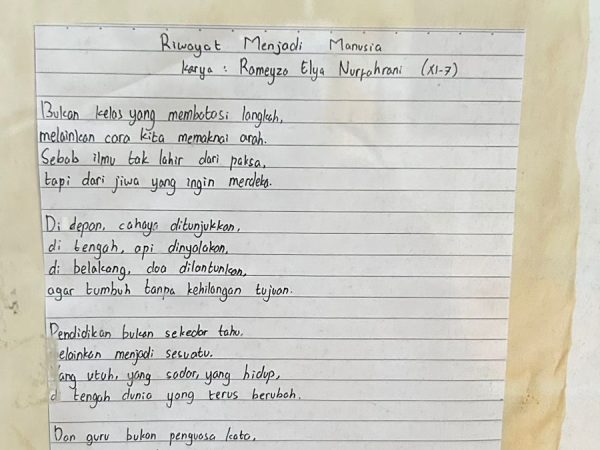 Riwayat Menjadi Manusia
karya : Rameyza Elya Nurfahrani (XI-7)
Bukan kelas yang membatasi langkah,
melainkan cara kita memaknai arah.
Sebab ilmu tak lahir dari paksa,
tapi dari jiwa yang ingin merdeka.
Di depan, cahaya ditunjukkan,
di tengah, api dinyalakan,
di belakang, doa dilantunkan,
agar tumbuh tanpa kehilangan tujuan.
Pendidikan bukan sekedar tahu.
elainkan menjadi sesuatu.
Yang utuh, yang sadar, yang hidup,
d tengah dunia yang terus berubah.
Dan guru bukan penguasa kata,